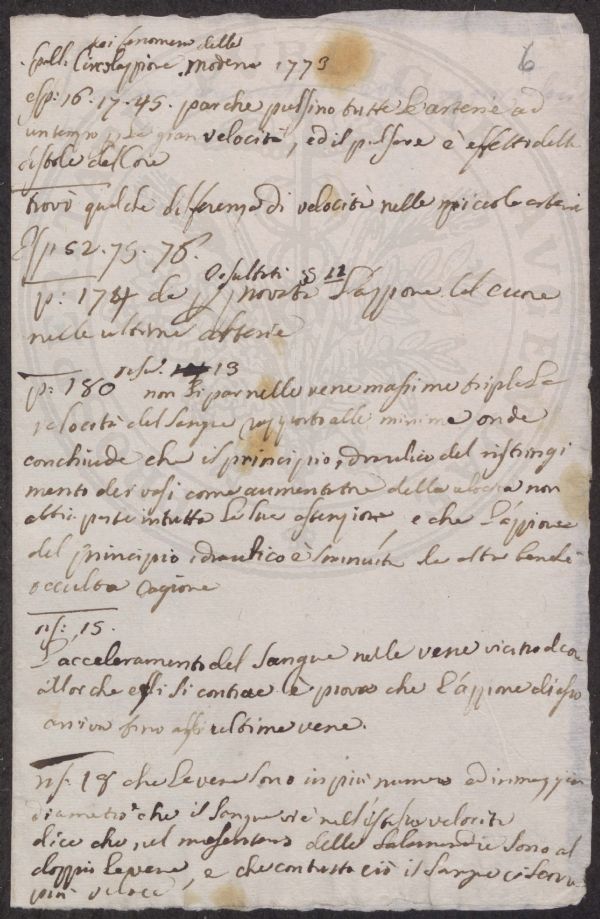 dei fenomeni della
Spall. Circolazione. Modena 1773
6
esp: 16. 17. 45. par che pulsino tutte le arterie ad
un tempo gran velocità, ed il pulsare è effetto della
del Core
trovò qualche differenza di velocità nelle piccole arterie
Esp. 52. 75. 76.
Resultati 11
p: 174 de l'azione del cuore
nelle ultime arterie
res. 13
p: 180 non nelle vene massime tripla la
velocità del sangue rapporto alle minime onde
conchiude che il principio idraulico del ristringi
mento dei vasi come aumentatore della non
abbia in tutta la sua estensione, e che l'azione
del principio idraulico è sminuita da altra benché
occulta cagione
15.
L'acceleramento del sangue nelle vene vicino al cor
allor che si contrae è prova che l'azione di esso
arriva fino alle ultime vene.
18 che le vene sono in più numero ed in maggior
diametro che il sangue velocità
dice che nel mesenterio delle Salamandre sono al
doppio le vene, e che con tutto ciò il sangue
più veloce